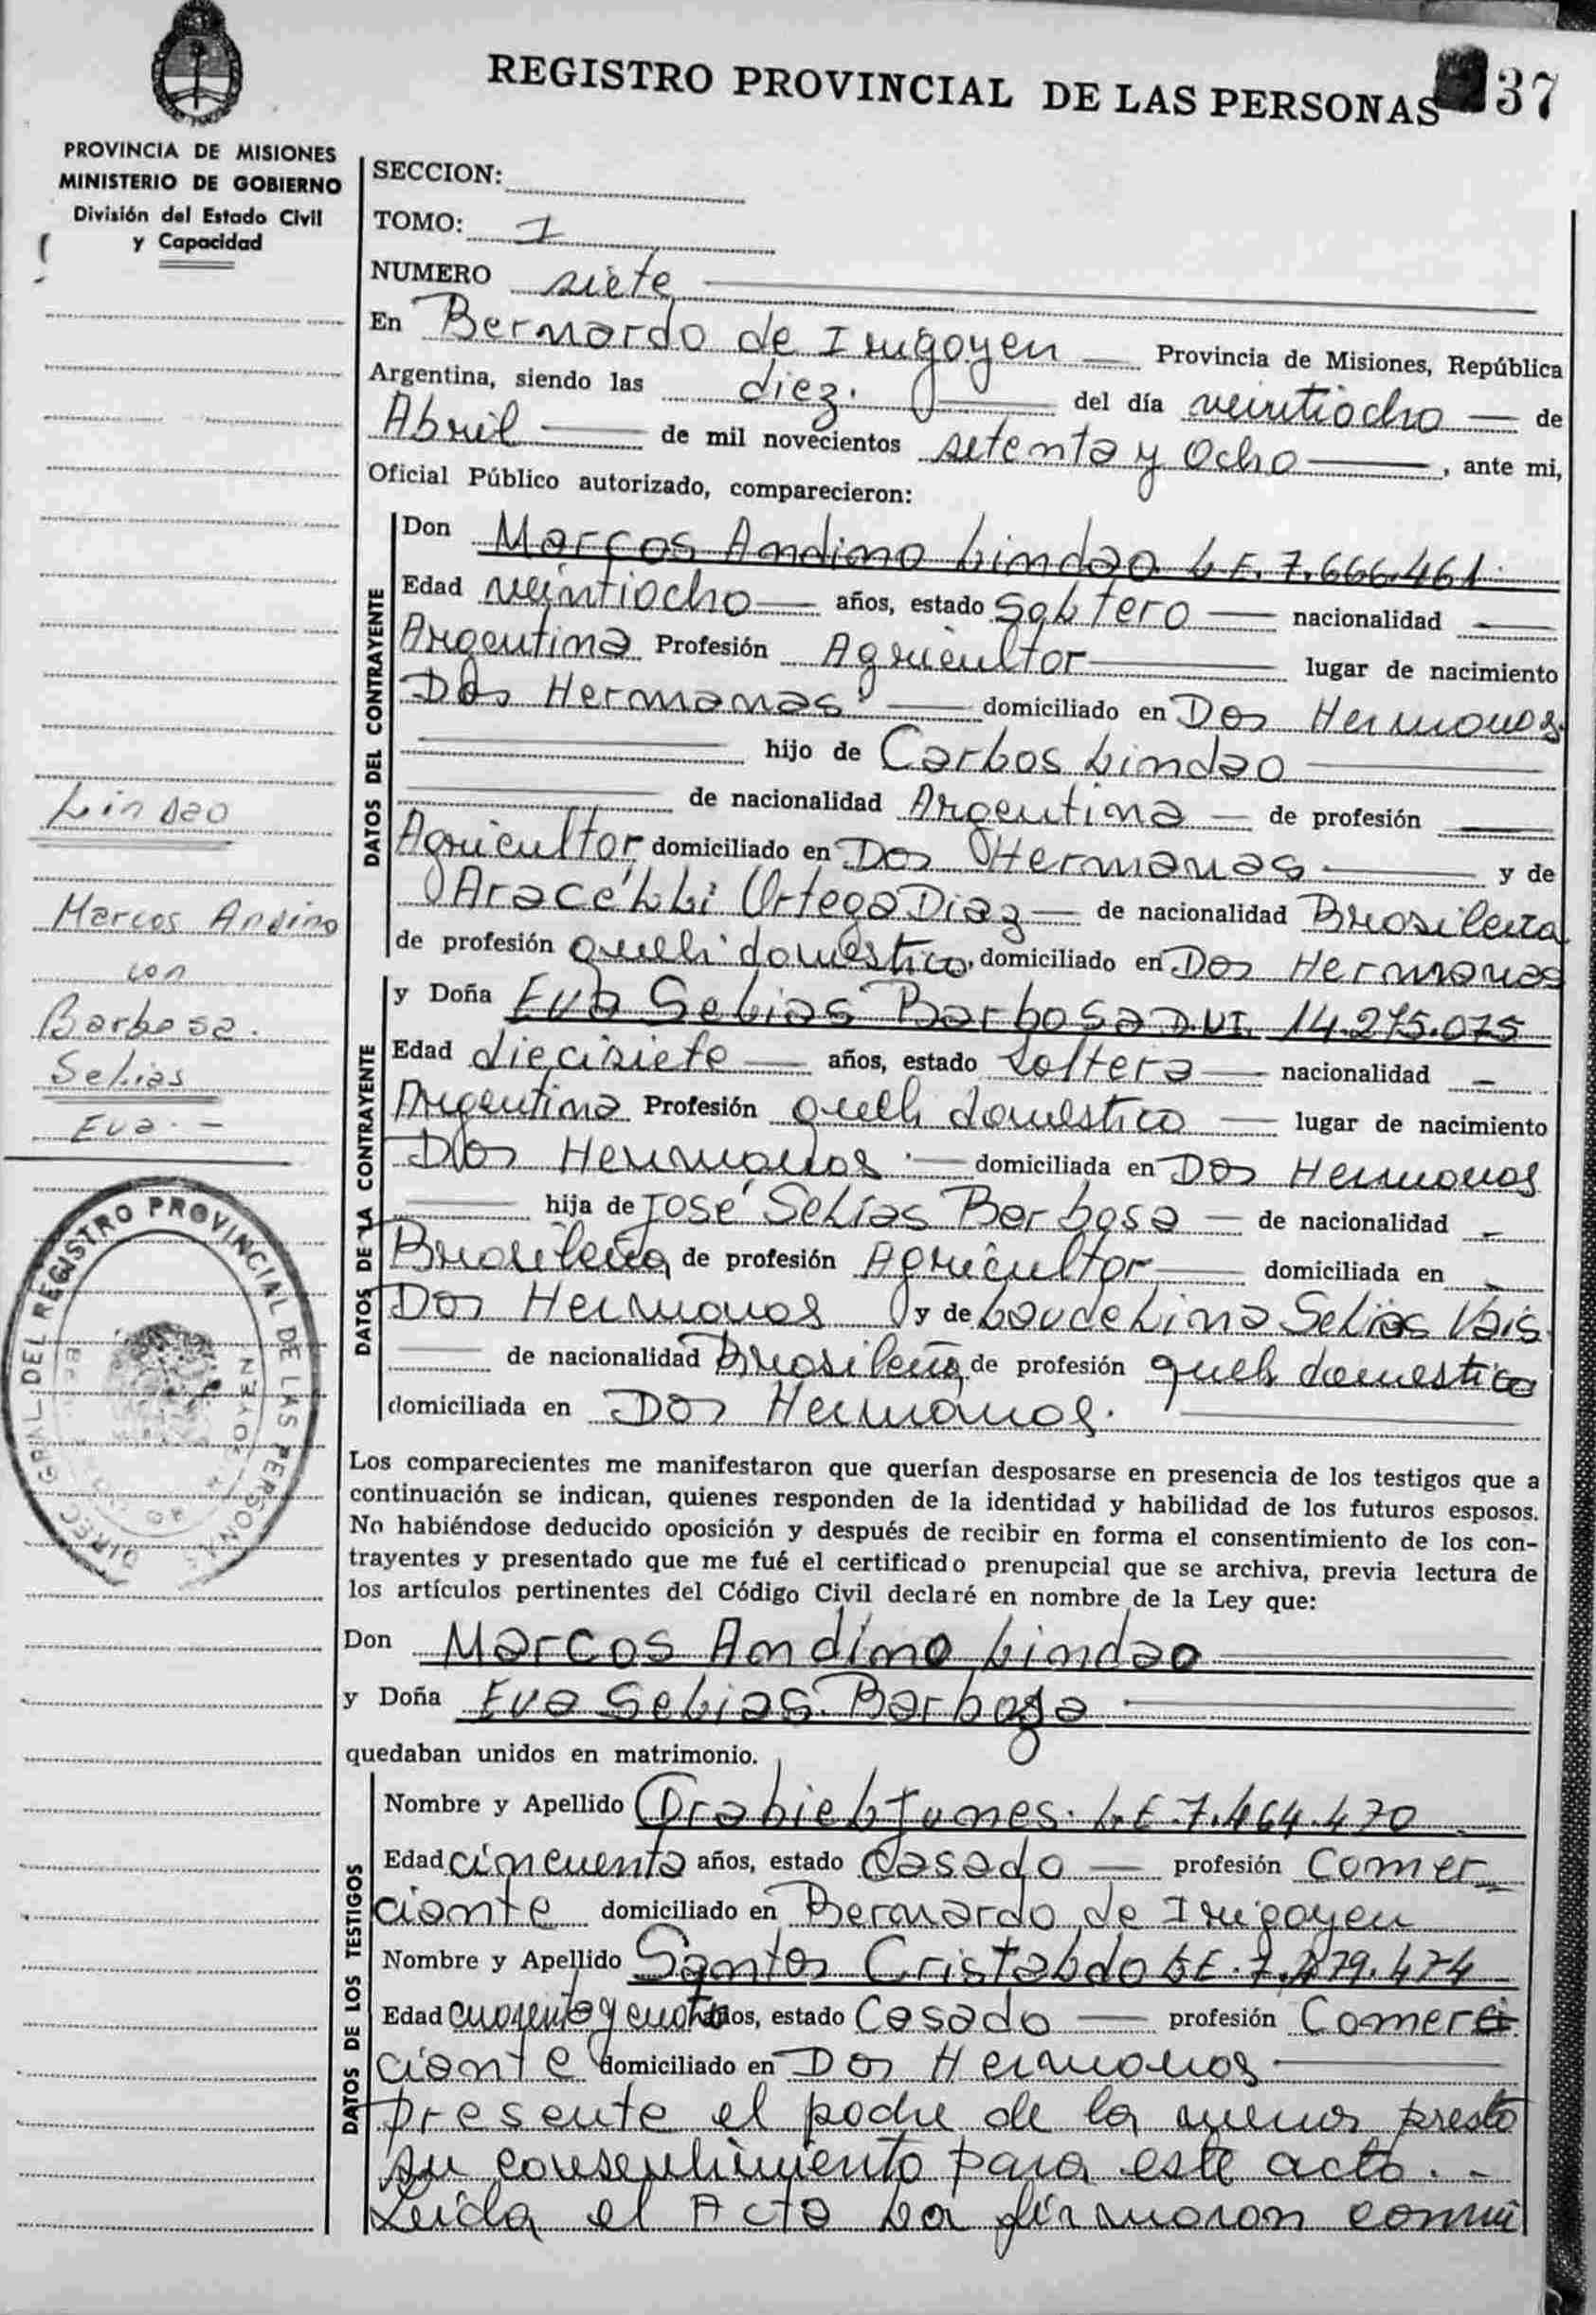 REGISTRO PROVINCIAL DE LAS PERSONAS
37
PROVINCIA DE MISIONES
MINISTERIO DE GOBIERNO
División del Estado Civil
y Capacidad
SECCION:
TOMO: 1
NUMERO siete
En Bernardo de Irigoyen Provincia de Misiones, República
Argentina, siendo las diez. del día veintiocho de
Abril de mil novecientos setenta y Ocho, ante mi,
Oficial Público autorizado, comparecieron:
DATOS DEL CONTRAYENTE
Don Marcos Andino Lindao L.E. 7.666.461
Edad veintiocho años, estado Soltero nacionalidad
Argentina Profesión Agricultor lugar de nacimiento
Dos Hermanas domiciliado en Dos Hermanas
hijo de Carlos Lindao
de nacionalidad Argentina de profesión
Agricultor domiciliado en Dos Hermanas y de
Aracélli Ortega Diaz de nacionalidad Brasileña
de profesión domestico, domiciliado en Dos Hermanas
DATOS DE LA CONTRAYENTE
y Doña Eva Selias Barbosa D.NI. 14.275.075
Edad diecisiete años, estado Soltera nacionalidad
Argentina Profesión domestico lugar de nacimiento
Dos Hermanas domiciliada en Dos Hermanas
hija de José Selias Barbosa de nacionalidad
Brasileña de profesión Agricultor domiciliada en
Dos Hermanas y de Laudelina Selias Vais
de nacionalidad Brasileña de profesión domestico
domiciliada en Dos Hermanas.
Los comparecientes me manifestaron que querían desposarse en presencia de los testigos que a
continuación se indican, quienes responden de la identidad y habilidad de los futuros esposos.
No habiéndose deducido oposición y después de recibir en forma el consentimiento de los con-
trayentes y presentado que me fué el certificado prenupcial que se archiva, previa lectura de
los artículos pertinentes del Código Civil declaré en nombre de la Ley que:
Don Marcos Andino Lindao
y Doña Eva Selias Barbosa
quedaban unidos en matrimonio.
DATOS DE LOS TESTIGOS
Nombre y Apellido Junes. L.E 7.464.470
Edad cincuenta años, estado Casado profesión Comer_
ciante domiciliado en Bernardo de Irigoyen
Nombre y Apellido Santos Cristaldo L.E. 7.479.474
Edad cuarenta y cuatro años, estado Casado profesión Comerci
ciante domiciliado en Dos Hermanas
presente el padre de la menor presto
su consentimiento para este acto. -
Leida el Acta la firmaron conmi
Lindao
Marcos Andino
con
Barbosa.
Selias
Eva. -
DIREC. GRAL. DEL REGISTRO PROVINCIAL DE LAS PERSONAS